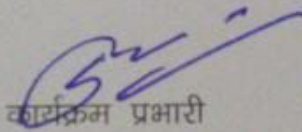 कार्यक्रम प्रभारी